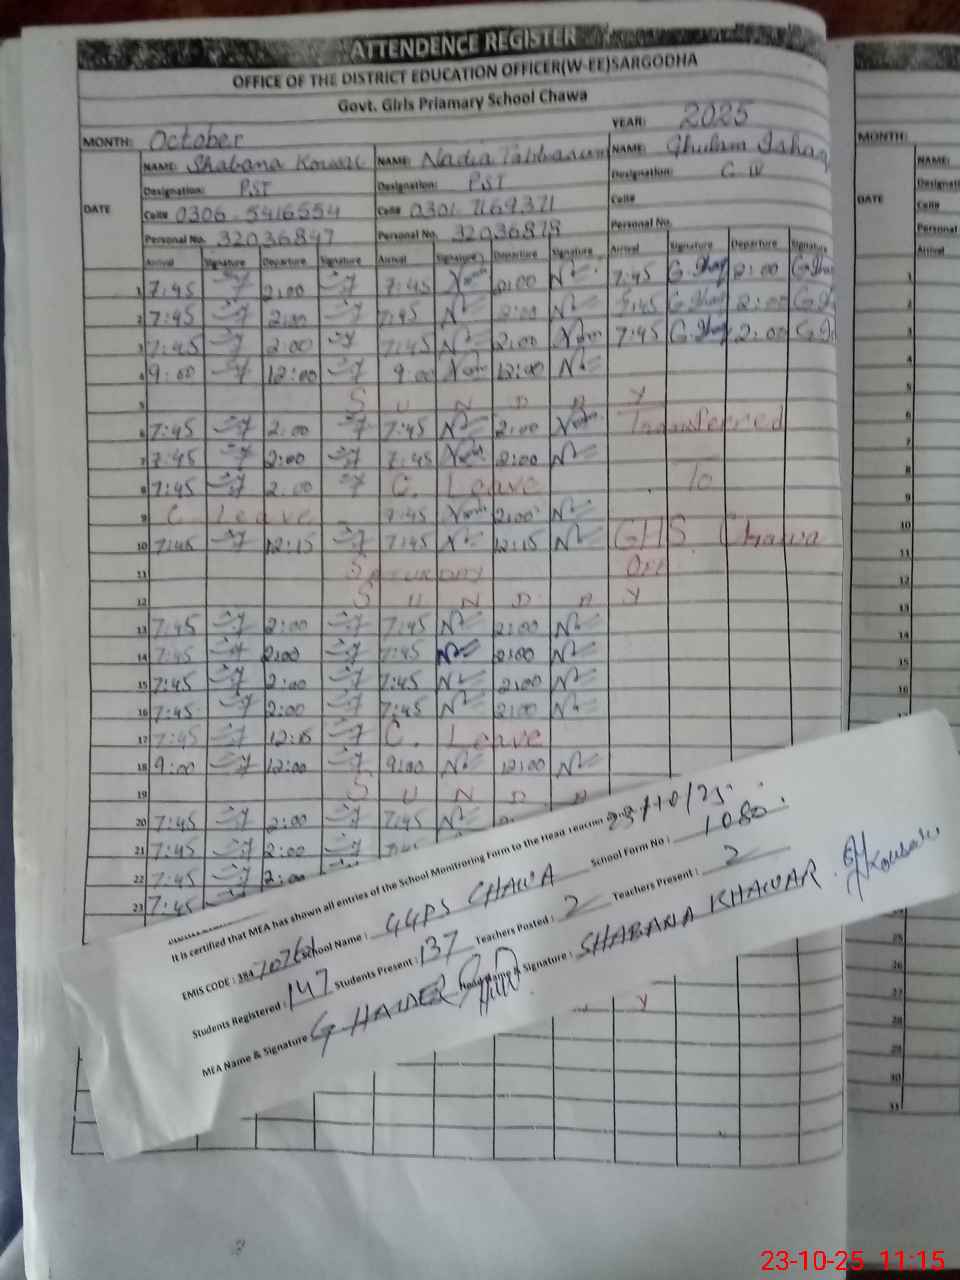 ATTENDENCE REGISTER
OFFICE OF THE DISTRICT EDUCATION OFFICER(W-EE)SARGODHA
Govt. Girls Priamary School Chawa
MONTH: October YEAR: 2025
NAME: Shabana Kousar NAME: Nadia Tabbasum NAME: Ghulam Ishaq
Designation: PST Designation: PST Designation: C IV
DATE Cell# 0306-5416554 Cell# 0301-7169371 Cell#
Personal No. 32036847 Personal No. 32036879 Personal No.
Arrival Signature Departure Signature Arrival Signature Departure Signature Arrival Signature Departure Signature
1 7:45 2:00 7:45 2:00 7:45 G.Ishaq 2:00
2 7:45 2:00 7:45 2:00 7:45 G.Ishaq 2:00
3 7:45 2:00 7:45 2:00 7:45 G.Ishaq 2:00
4 9:00 12:00 9:00 12:00
5 S U N D A Y
6 7:45 2:00 7:45 2:00 Transferred
7 7:45 2:00 7:45 2:00
8 7:45 2:00 C. Leave To
9 C. Leave 7:45 2:00
10 7:45 12:15 7:45 12:15 GHS Chawa
11 SATURDAY OFF
12 S U N D A Y
13 7:45 2:00 7:45 2:00
14 7:45 2:00 7:45 2:00
15 7:45 2:00 7:45 2:00
16 7:45 2:00 7:45 2:00
17 7:45 12:15 C. Leave
18 9:00 12:00 9:00 12:00
19 S U N D A
20 7:45 2:00 7:45
21 7:45 2:00
22 7:45 2:00
23 7:45
It is certified that MEA has shown all entries of the School Monitoring Form to the Head Teacher 23/10/25
EMIS CODE : 384 School Name : GGPS CHAWA School Form No : 1080
Students Registered : 147 Students Present : 137 Teachers Posted : 2 Teachers Present : 2
MEA Name & Signature G HAIDER Name & Signature : SHABANA KHAWAR
Y
MONTH:
NAME:
DATE
Cell#
Personal
Arrival
1
2
3
4
5
6
7
8
9
10
11
12
13
14
15
16
26
27
28
29
30
31
23-10-25 11:15